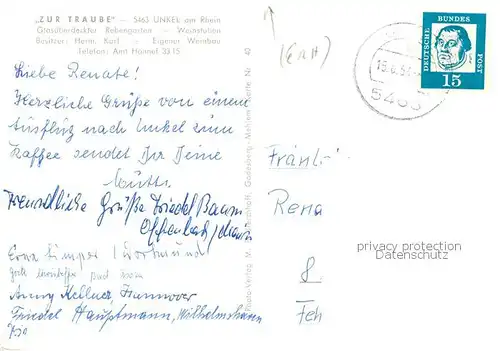 „ZUR TRAUBE" — 5463 UNKEL am Rhein
Glasüberdeckter Rebengarten — Weinstuben
Besitzer: Herm. Korf — Eigener Weinbau
Telefon: Amt Honnef 3315
Liebe Renate!
Herzliche Grüße von einem
Ausflug nach Unkel zum
Kaffee sendet Dir Deine
Mutti.
Freundliche Grüße Friedel Baum
Offenbach/Main
Erna Limper (Dortmund)
Gute
Anny Kellner, Hannover
Friedel Hauptmann, Wilhelmshaven
Godesberg-Mehlem Karte Nr. 40
(ERH)
DEUTSCHE BUNDESPOST
15
5463
Fräul
Rena
8.
Feh
privacy protection
Datenschutz